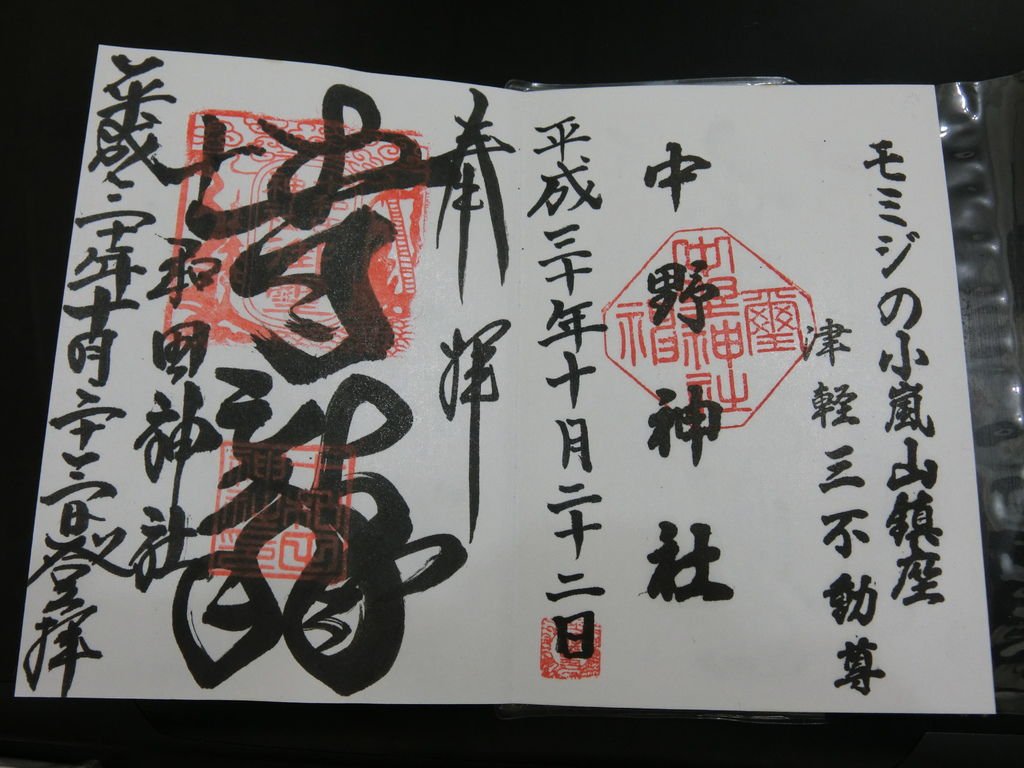 モミジの小嵐山鎮座
津軽三不動尊
中野神社
平成三十年十月二十二日
奉拝
青龍
十和田神社
平成三十年十月二十二日登拝